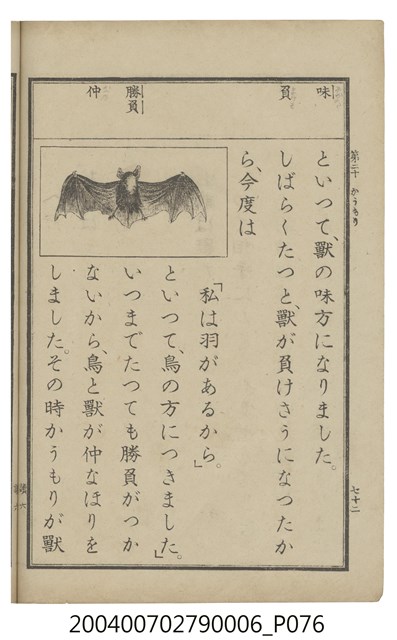 第二十 かうもり
七十二
味
負
勝負
仲
といつて、獸の味方になりました。
しばらくたつと、獸が負けさうになつたか
ら、今度は
「私は羽があるから。」
といつて、鳥の方につきました。
いつまでたつても勝負がつか
ないから、鳥と獸が仲なほりを
しました。その時かうもりが獸
200400702790006_P076